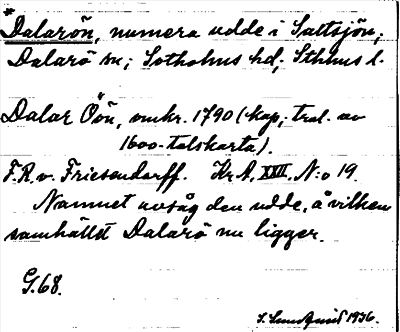 * Dalarön, numera udde i Saltsjön;
Dalarö sn; Sotholms hd, Sthlms l.
Dalar Öön, omkr. 1790 (kop; trol. av
1600-talskarta).
F.R. v. Friesendorff. Kr. A. XXII, N:o 19.
Namnet avsåg den udde, å vilken
samhället Dalarö nu ligger.
G.68.
S. Lundqvist 1936.